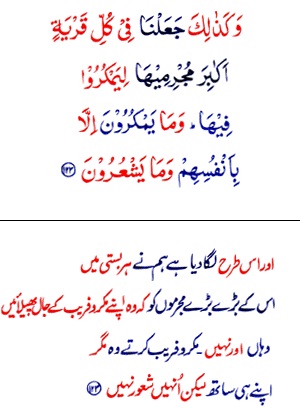 وَ كَذٰلِكَ جَعَلْنَا فِیْ كُلِّ قَرْیَةٍ
اَكٰبِرَ مُجْرِمِیْهَا لِیَمْكُرُوْا
فِیْهَا ؕ وَمَا یَمْكُرُوْنَ اِلَّا
بِاَنْفُسِهِمْ وَمَا یَشْعُرُوْنَ ۝۱۲۳
اور اس طرح لگا دیا ہے ہم نے ہر بستی میں
اس کے بڑے بڑے مجرموں کو کہ وہ اپنے مکر و فریب کے جال پھیلائیں
وہاں اور نہیں ۔ مکر و فریب کرتے وہ مگر
اپنے ہی ساتھ لیکن اُنہیں شعور نہیں ۝۱۲۳